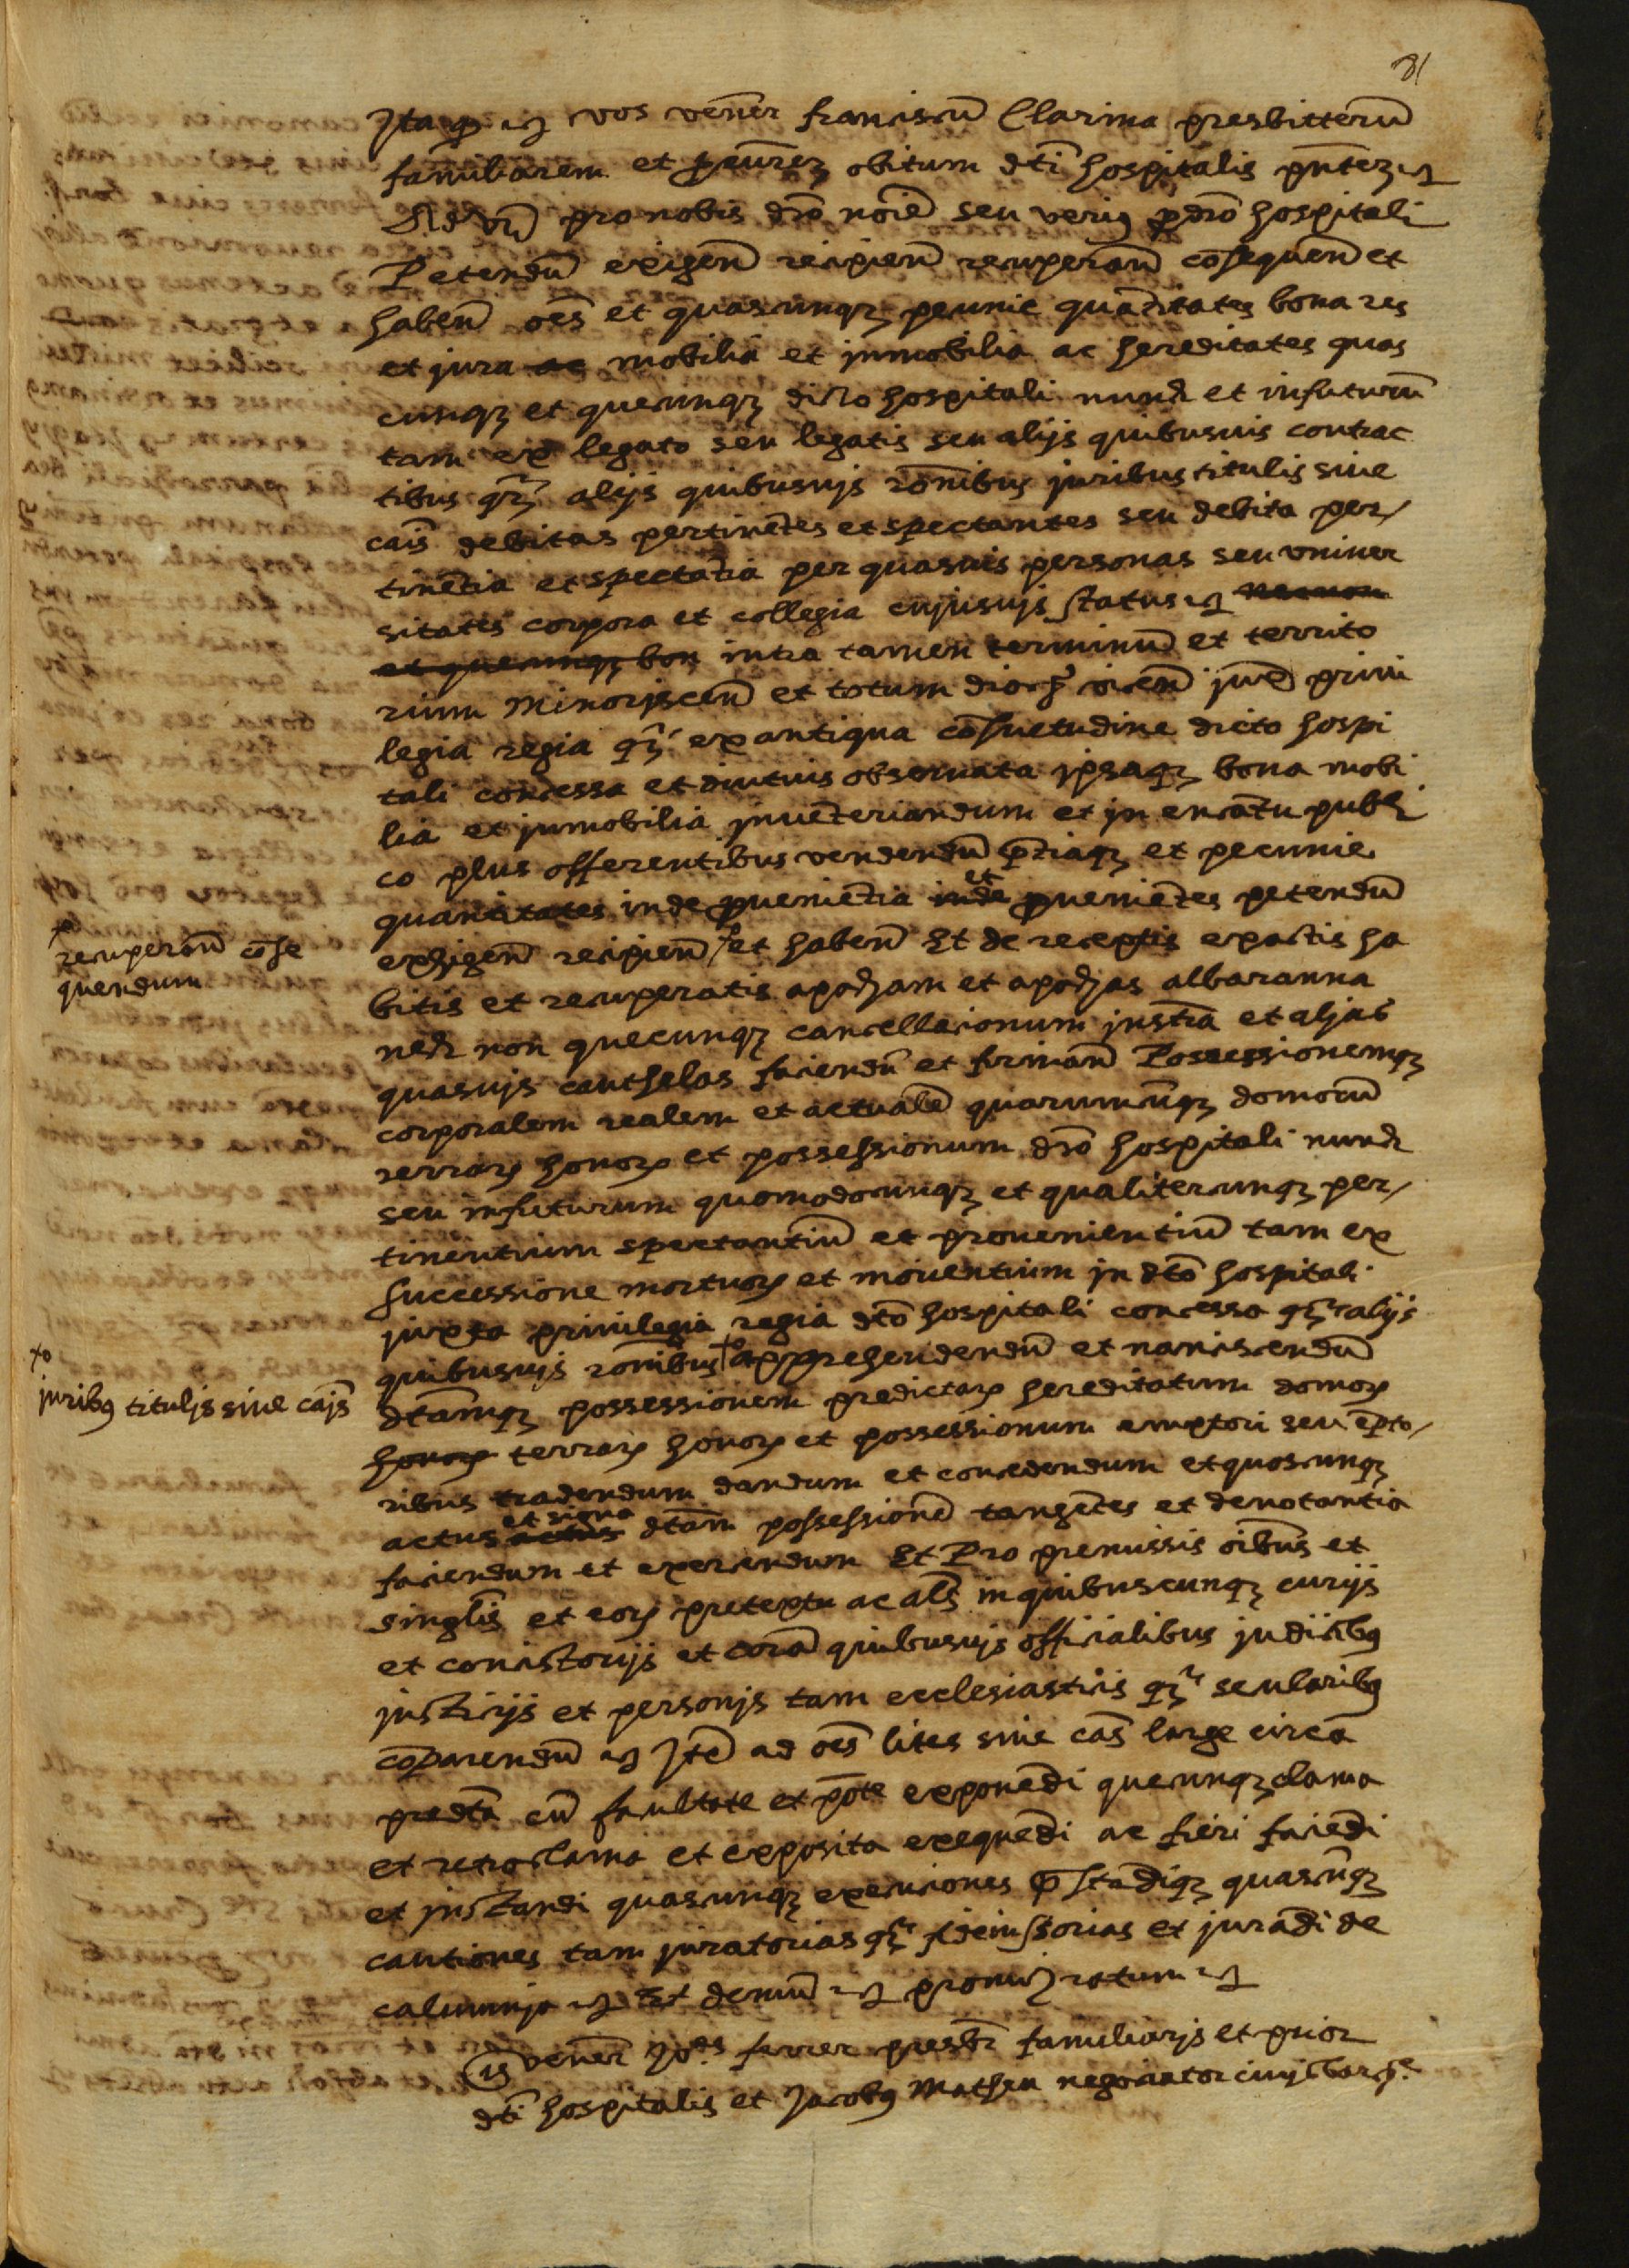 81
Jta q etc vos vener franciscu Clarima presbitteru
familiarem et procurez obitum dti hospitalis pntez etc
Ad vm pro nobis dto noie seu verius p dto hospitali
Petendu exigen recipien recuperan cosequen et
haben oes et quascunqz pecunie quatitates bona res
et jura ac mobilia et jnmobilia ac hereditates quas
cunqz et quecunqz dicto hospitali nunch et infuturu
tam ex legato seu legatis seu alijs quibusuis contrac
tibus qz alijs quibusujs ronibus juribus titulis siue
cais debitas pertinetes et spectantes seu debita per/
tinetia et spectatia per quasuis personas seu vniuer
sitates corpora et collegia cujusujs status etc nec non
et quecunqz bon intra tamen terminu et territo
rium Minoriscen et totum diocs vicen juxe priui
legia regia qz ex antiqua cosuetudine dicto hospi
tali concessa et diutius obseruata jpsaqz bona mobi
lia et jnmobilia jnueteriandum et jn encatu publi
co plus offerentibus vendendu ptiaqz et pecunie
quantitates inde prouenietia inde et prouenietes petendu
exhigen recipien et haben Et de receptis exactis ha
+ recuperan cose
quendum
bitis et recuperatis apodjam et apodjas albaranna
nech non quecunqz cancellacionum justra et aljas
quasujs cauthelas faciendu et firman Possessionemqz
corporalem realem et actuale quarumcunqz domoru
terrarz honorz et possessionum dto hospitali nunch
seu infuturum quomodocunqz et qualitercunqz per/
tinentium spectantiu et prouenientiu tam ex
successione mortuorz et morientium jn dto hospitali
juxta priuilegia regia dto hospitali concessa qz alijs
quibusujs ronibus + apprehendendu et nanciscendu
+o
juribus titulis siue cajs
dtamqz possessionem predictarz hereditatum domorz
honorz terrarz honorz et possessionum emptori seu epto/
ribus tradendum dandum et concedendum et quoscunqz
actus actus et signa dtam possessione tangetes et denotantia
faciendum et exercendum Et Pro premissis oibus et
singlis et eorz pretextu ac als in quibuscunqz curijs
et concistorijs et cora quibusujs officialibus judicibus
justicijs et personjs tam ecclesiasticis qz secularibus
coparendu etc Jte ad oes lites siue cas large circa
predta cu facultate et pote exponedi quecunqz clama
et retroclama et exposita exequedi ac fieri faciedi
et jnstandi quascunqz execuciones prstadiqz quascunqz
cautiones tam juratorias qz fideiussorias et juradi de
calumnja etc Et demu etc promis ratum etc
ts vener Johs ferrer presbr familiarjs et prior
dti hospitalis et Jacobus Matheu negociator ciujs bare